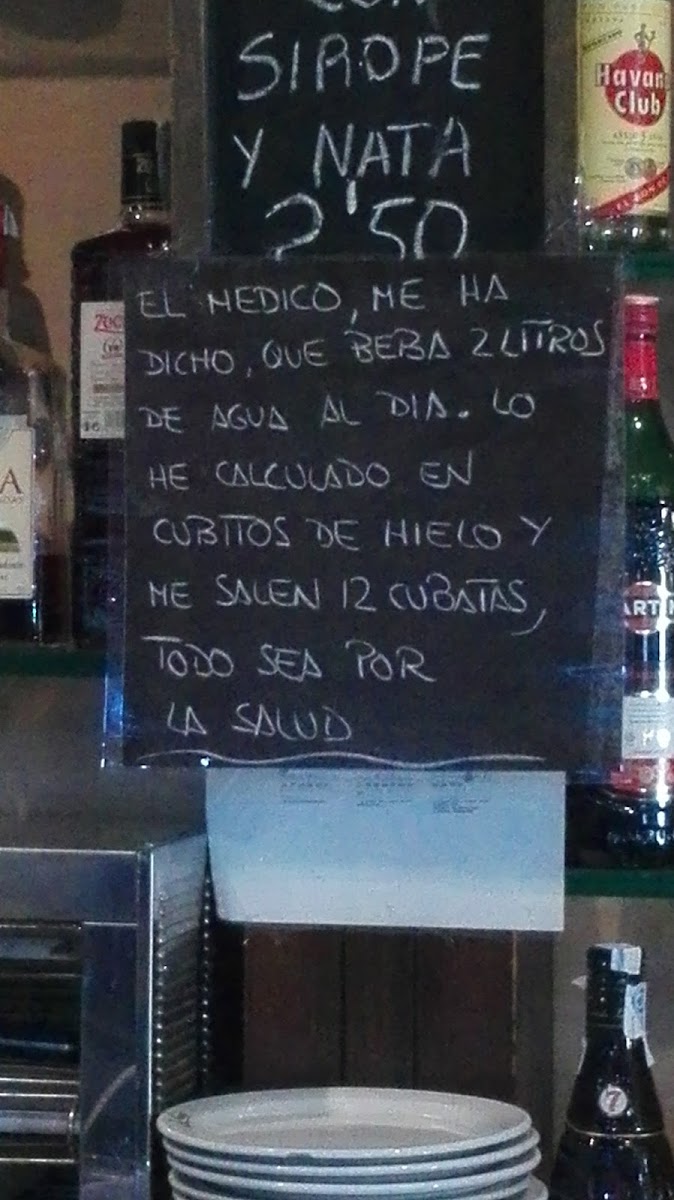 SIROPE
Y NATA
2'50
EL MEDICO, ME HA
DICHO, QUE BEBA 2 LITROS
DE AGUA AL DIA. LO
HE CALCULADO EN
CUBITOS DE HIELO Y
ME SALEN 12 CUBATAS,
TODO SEA POR
LA SALUD
Havan
Club
ARTI
7